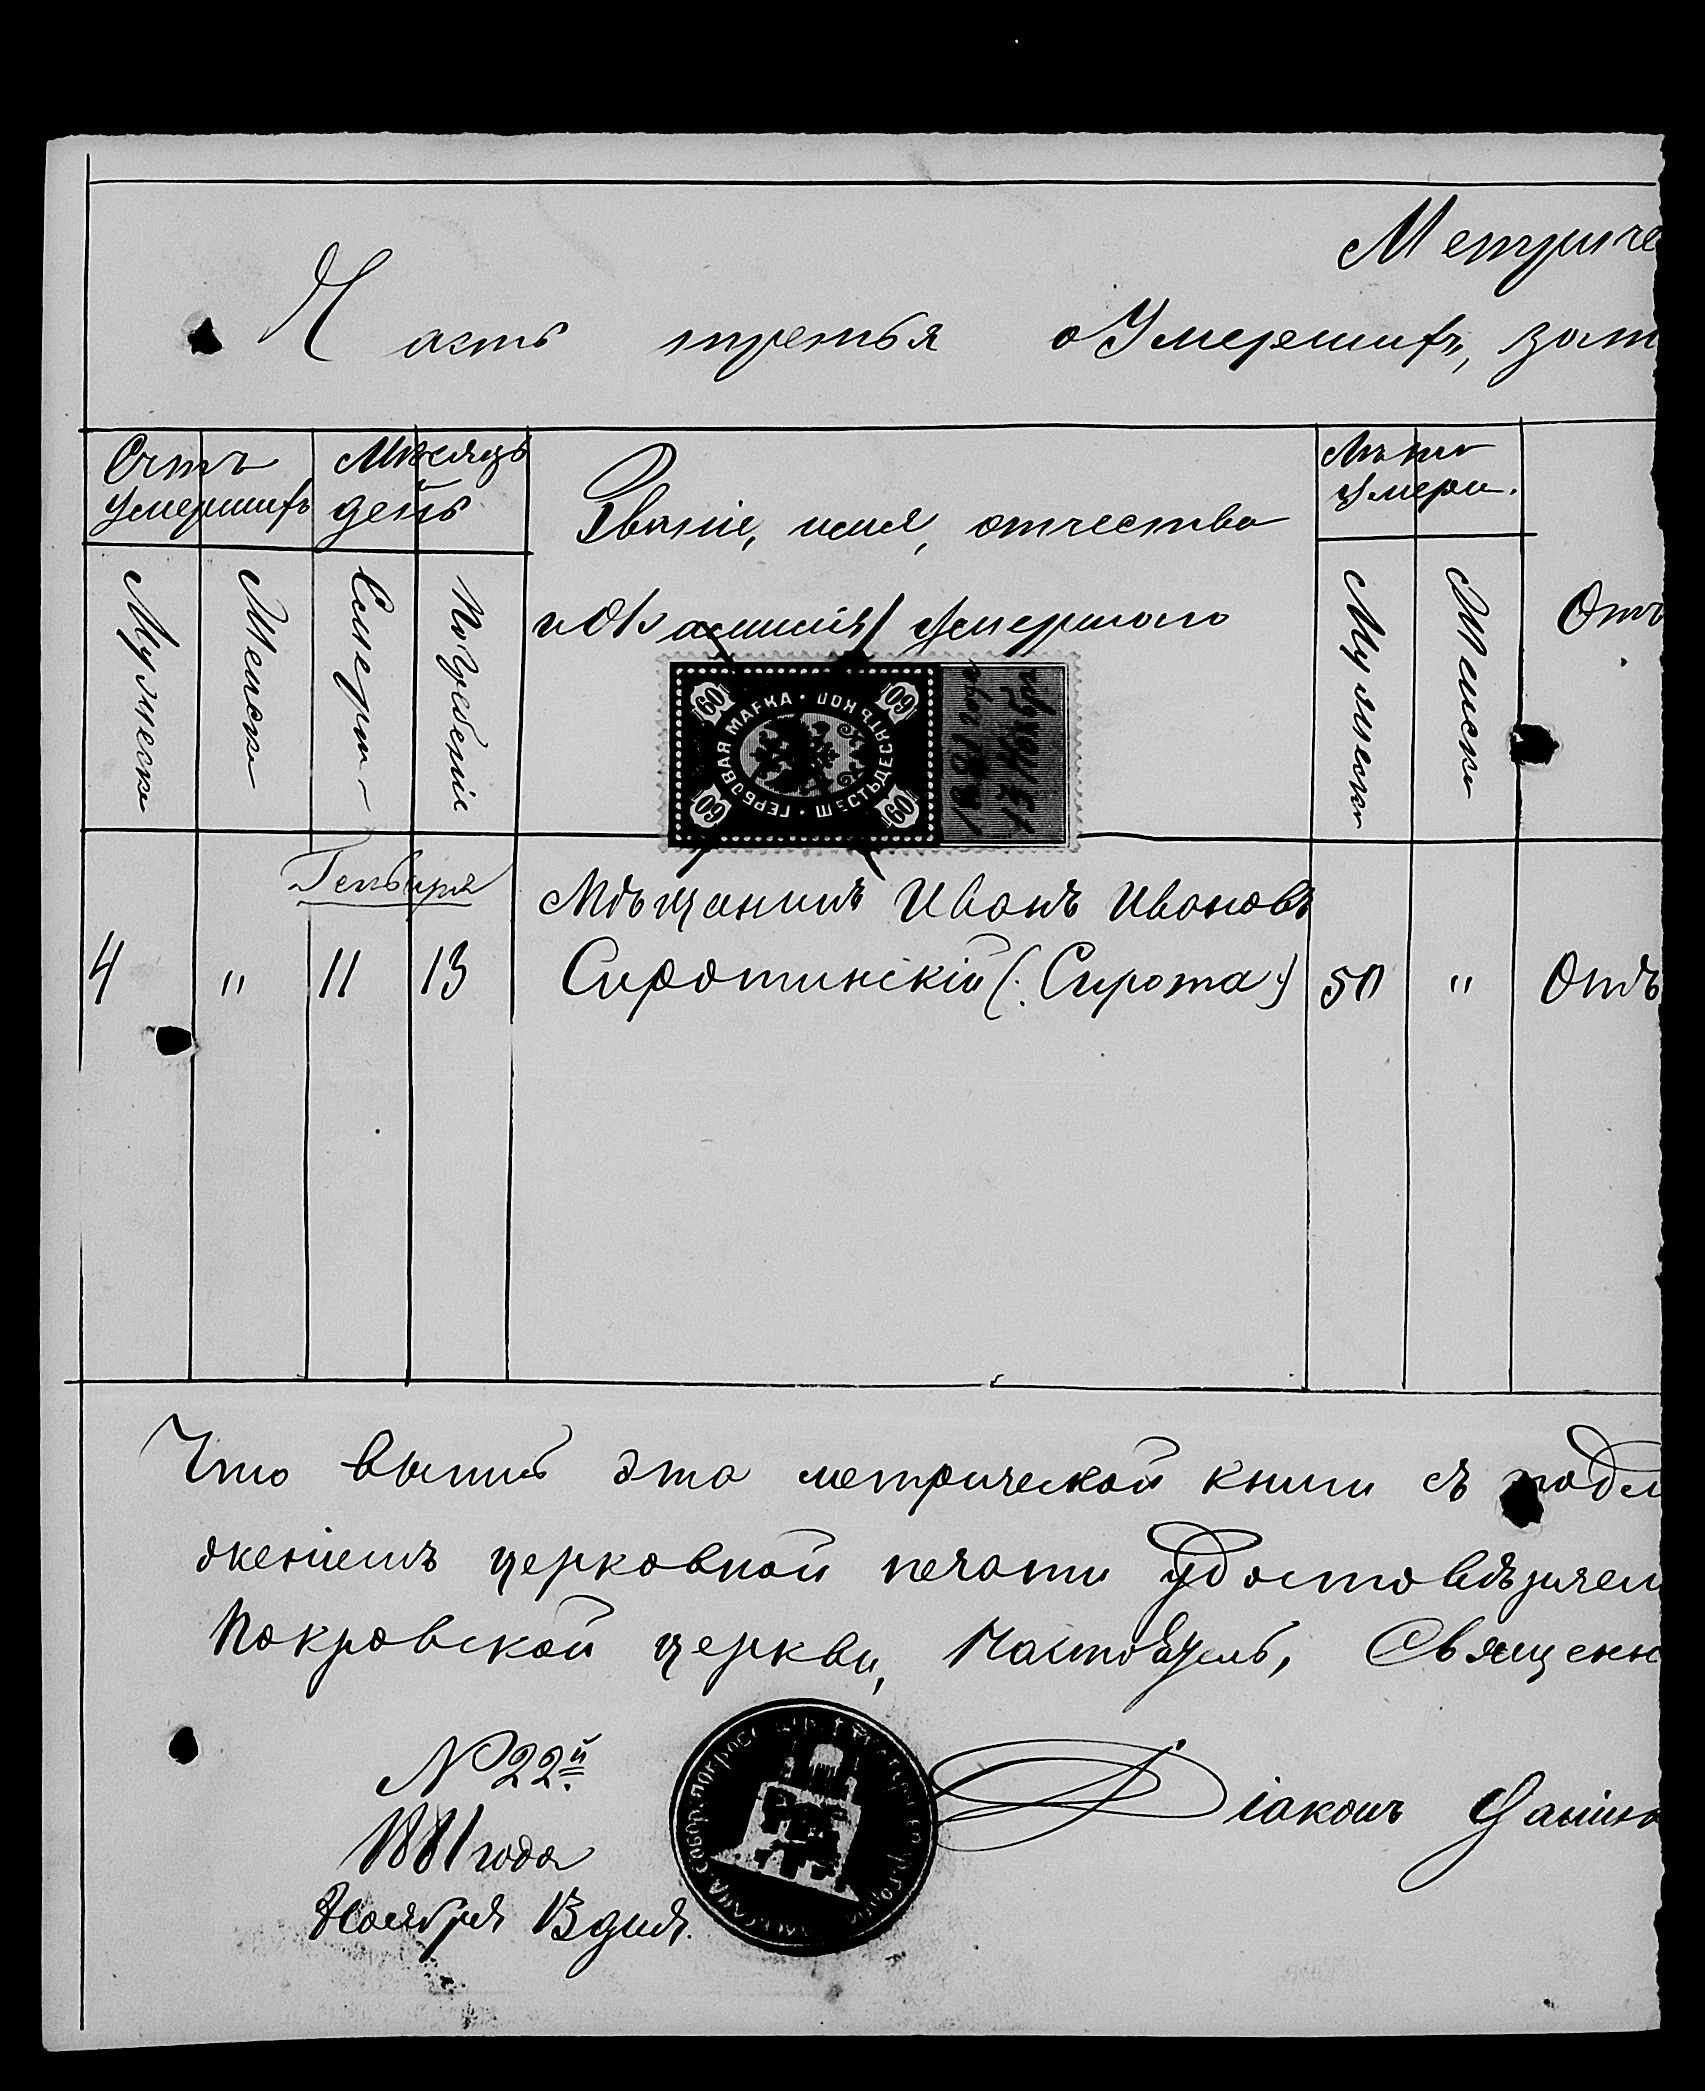 Метриче
Часть третья о Умершихъ, зат
Счетъ умершихъ
Мѣсяцъ день
Званіе, имя, отчество
и Фамилія умершаго
Лѣта умерш.
Мужеска
Женска
Смерти
Погребенія
Мужеска
Женска
Отъ
ГЕРБОВАЯ МАРКА · ШЕСТЬДЕСЯТЪ КОП
60 60 60 60
1881 года
13 Ноября
Генваря
Мѣщанинъ Иванъ Ивановъ
4 " 11 13 Сиротинскій (: Сирота :) 50 " Отъ
Что выпись эта метрической книги съ подл
женіемъ церковной печати удостовѣряем
Покровской церкви, Настоятель, Священн
№ 22й
1881 года
Ноября 13 дня.
Діаконъ